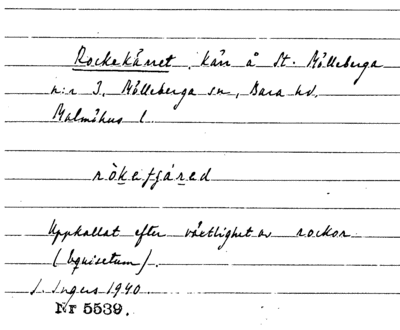 Rockekärret, kärr å St. Mölleberga
n:r 3, Mölleberga sn, Bara hd.
Malmöhus l.
ròkefjáred
Uppkallat efter växtlighet av rockor
(Equisetum).
I. Ingers 1940.
Nr 5539.